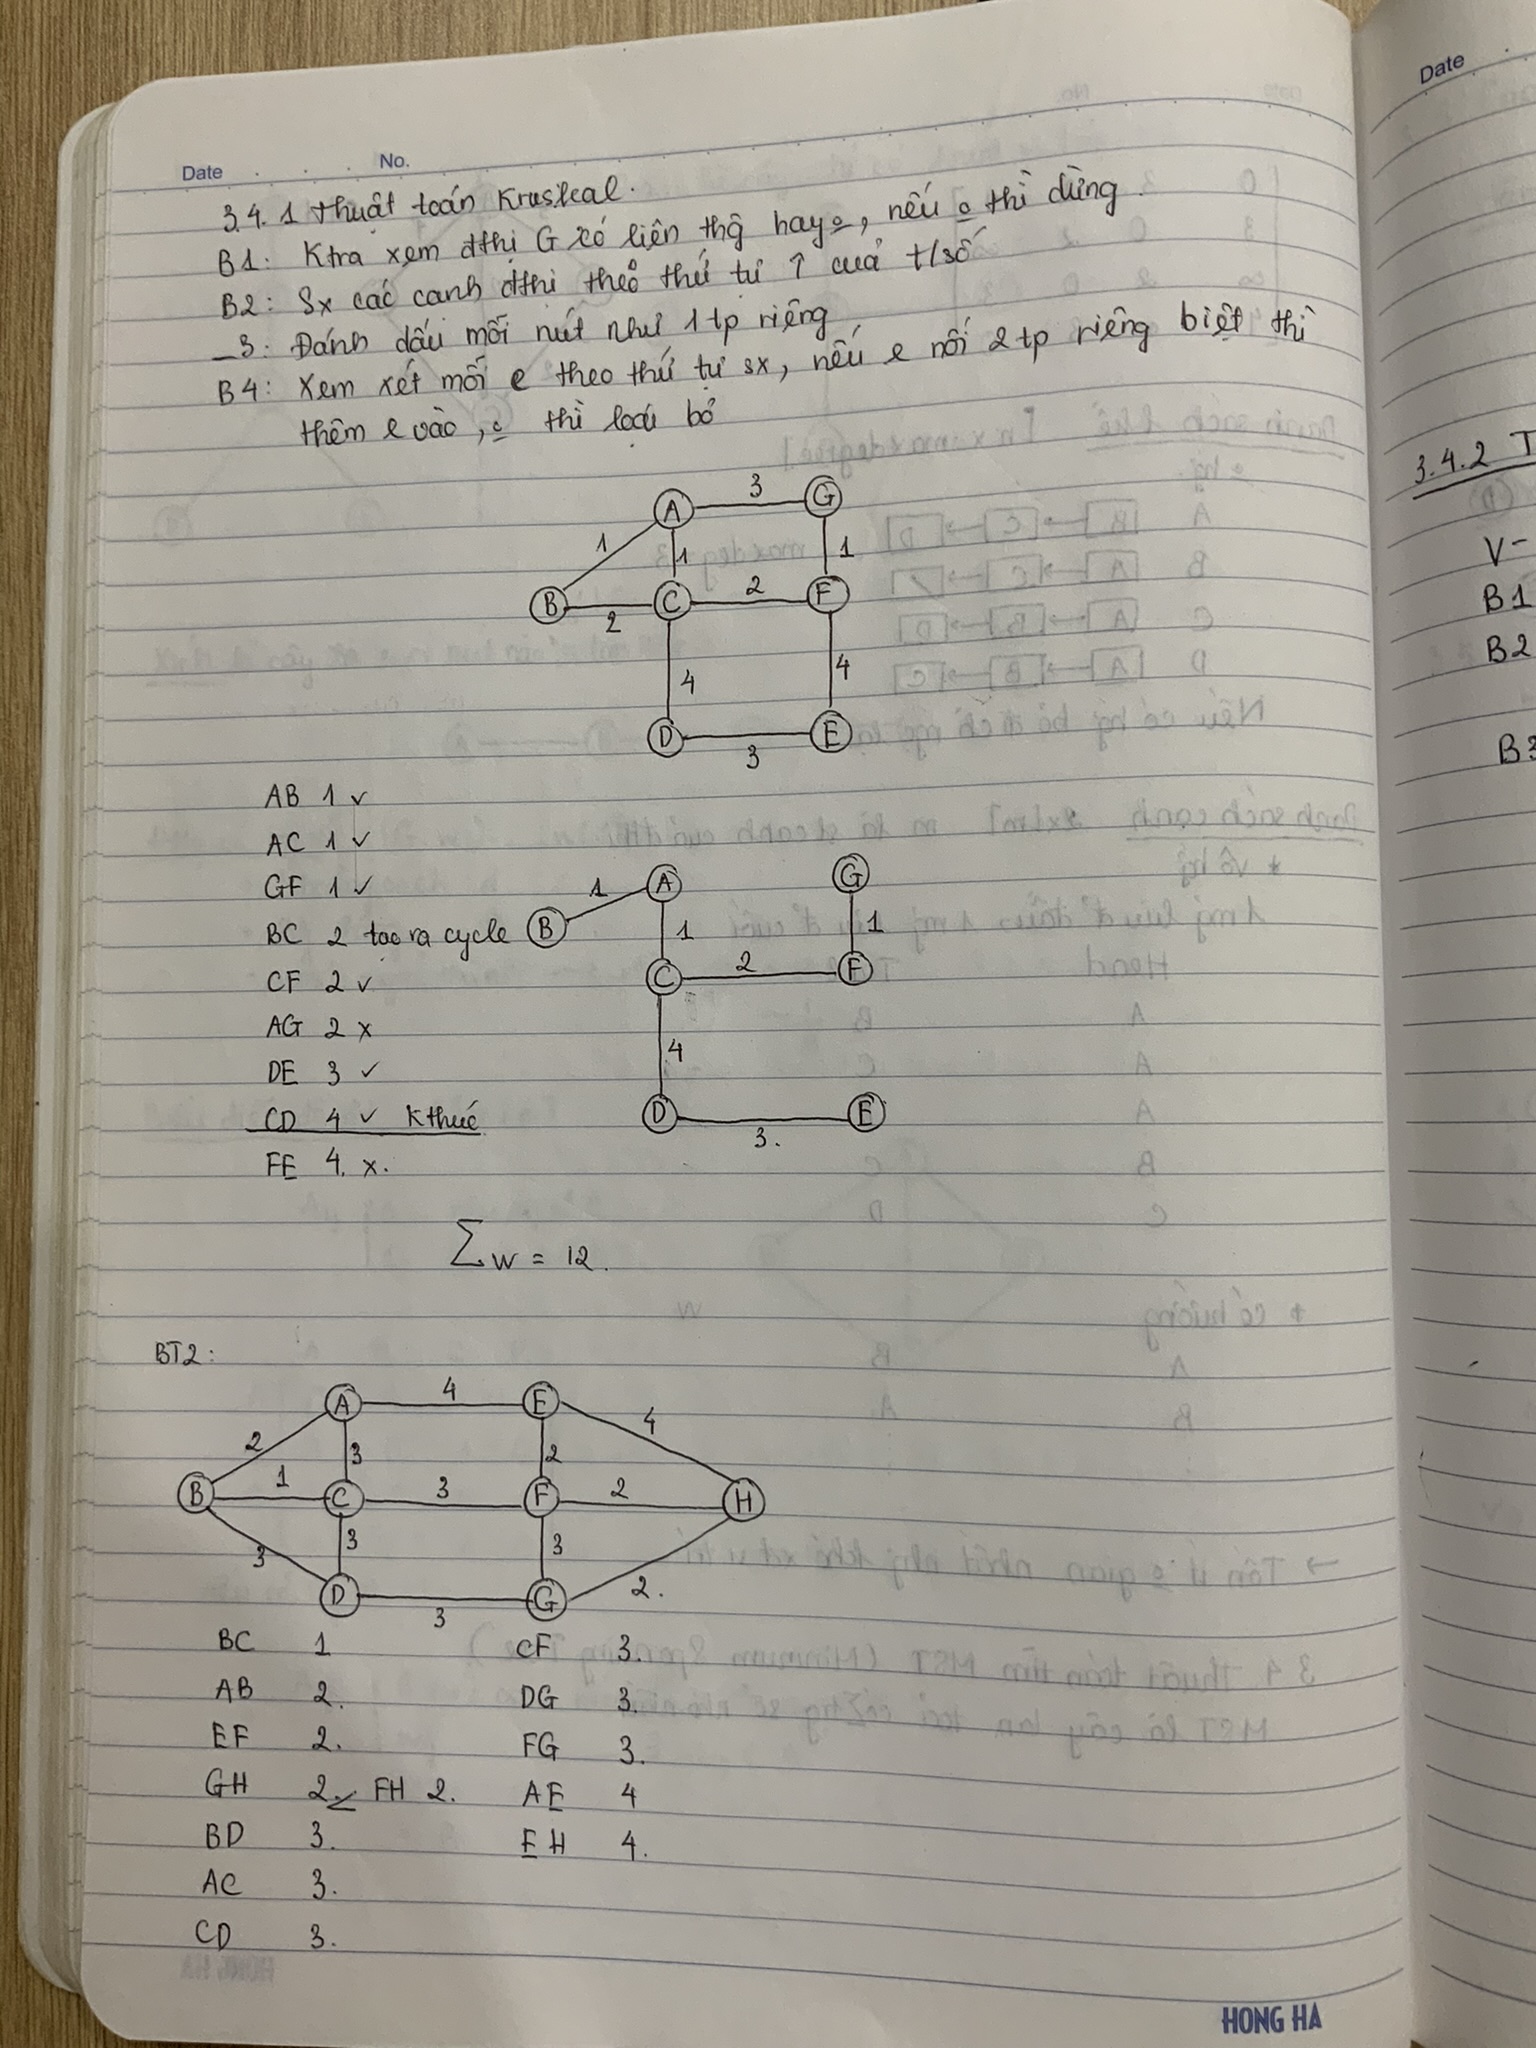 Date No.
3.4.1 Thuật toán Kruskal.
B1: Ktra xem đthị G có liên thg hay o, nếu o thì dừng.
B2: Sx các cạnh đthị theo thứ tự ↑ của t/số
_3: Đánh dấu mỗi nút như 1 tp riêng
B4: Xem xét mỗi e theo thứ tự sx, nếu e nối 2 tp riêng biệt thì
thêm e vào, o thì loại bỏ
A 3 G
1 1 1
B 2 C 2 F
4 4
D 3 E
AB 1 ✓
AC 1 ✓
GF 1 ✓
BC 2 tạo ra cycle
CF 2 ✓
AG 2 x
DE 3 ✓
CD 4 ✓ K thúc
FE 4. x.
1 A G
B 1 1
C 2 F
4
D 3. E
∑w = 12.
BT2:
A 4 E
2 3 2 4
B 1 C 3 F 2 H
3 3 3 2.
D 3 G
BC 1
AB 2.
EF 2.
GH 2. FH 2.
BD 3.
AC 3.
CD 3.
CF 3.
DG 3.
FG 3.
AE 4
EH 4.
HONG HA
Date
3.4.2 T
V-
B1
B2
B3